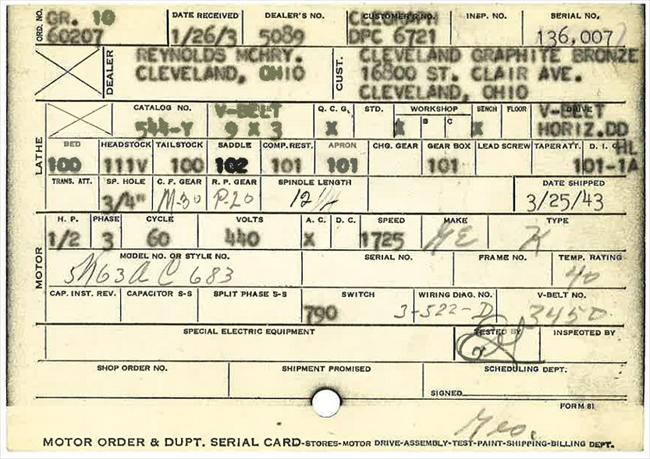 ORD. NO. GR. 10 DATE RECEIVED DEALER'S NO. CUSTOMER'S NO. INSP. NO. SERIAL NO.
60207 1/26/3 5089 DPC 6721 136,007
DEALER REYNOLDS MCHRY. CUST. CLEVELAND GRAPHITE BRONZE
CLEVELAND, OHIO 16800 ST. CLAIR AVE.
CLEVELAND, OHIO
LATHE CATALOG NO. V-BELT Q. C. G. STD. WORKSHOP BENCH FLOOR DRIVE
B C V-BELT
544-Y 9 X 3 X X X HORIZ.DD
BED HEADSTOCK TAILSTOCK SADDLE COMP. REST. APRON CHG. GEAR GEAR BOX LEAD SCREW TAPER ATT. D. I. HL
100 111V 100 102 101 101 101 101-1A
TRANS. ATT. SP. HOLE C. F. GEAR R. P. GEAR SPINDLE LENGTH DATE SHIPPED
3/4" M-30 P-20 12 1/4 3/25/43
MOTOR H. P. PHASE CYCLE VOLTS A. C. D. C. SPEED MAKE TYPE
1/2 3 60 440 X 1725 GE K
MODEL NO. OR STYLE NO. SERIAL NO. FRAME NO. TEMP. RATING
5K63AC683 40
CAP. INST. REV. CAPACITOR S-S SPLIT PHASE S-S SWITCH WIRING DIAG. NO. V-BELT NO.
790 3-522-D 345D
SPECIAL ELECTRIC EQUIPMENT TESTED BY INSPECTED BY
SHOP ORDER NO. SHIPMENT PROMISED SCHEDULING DEPT.
SIGNED
FORM 81
Geo.
MOTOR ORDER & DUPT. SERIAL CARD-STORES-MOTOR DRIVE-ASSEMBLY-TEST-PAINT-SHIPPING-BILLING DEPT.